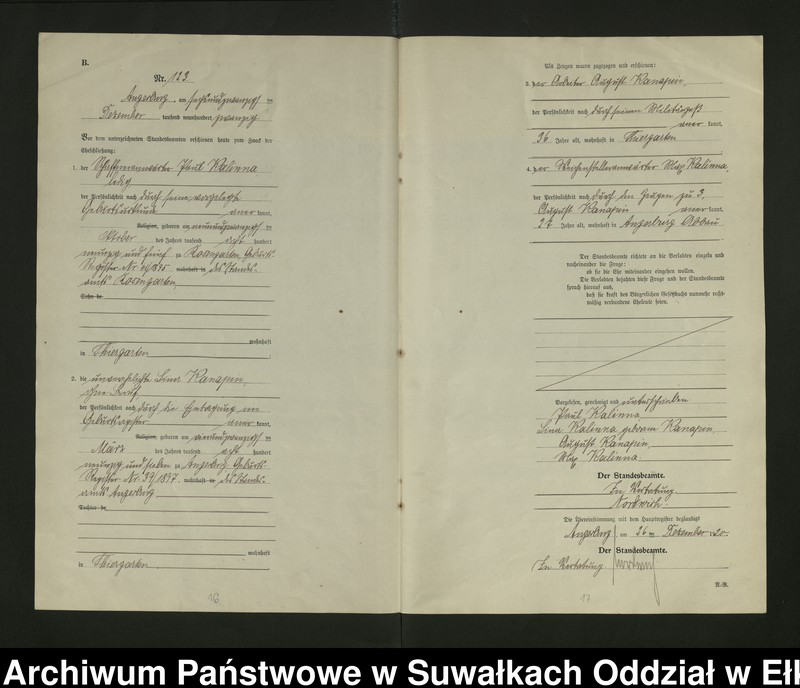 B.
Nr. 123
Angerburg am sechsundzwanzigsten
Dezember tausend neunhundert zwanzig
Vor dem unterzeichneten Standesbeamten erschienen heute zum Zweck der
Eheschließung:
1. der Paul Kalinna
ledig
der Persönlichkeit nach durch seine vorgelegte
Geburtsurkunde anerkannt,
Religion, geboren am neunundzwanzigsten
Oktober des Jahres tausend acht hundert
neunzig und fünf zu Rosengarten, Geburts-
Register Nr. wohnhaft in des Standes-
amts Rosengarten,
Sohn de
wohnhaft
in Thiergarten
2. die unverehelichte Lina Kanapin,
ohne Beruf,
der Persönlichkeit nach durch die Eintragung im
Geburtsregister anerkannt,
Religion, geboren am
März des Jahres tausend acht hundert
neunzig und sieben zu Angerburg, Geburts-
Register Nr. 39/1897 wohnhaft in des Standes-
amts Angerburg
Tochter de
wohnhaft
in Thiergarten
16
Als Zeugen waren zugezogen und erschienen:
3. der Arbeiter August Kanapin,
der Persönlichkeit nach durch seinen Militärpaß
anerkannt,
36 Jahre alt, wohnhaft in Thiergarten
4. der Weichenstelleranwärter Max Kalinna,
der Persönlichkeit nach durch den Zeugen zu 3,
August Kanapin anerkannt,
27 Jahre alt, wohnhaft in Angerburg Abbau
Der Standesbeamte richtete an die Verlobten einzeln und
nacheinander die Frage:
ob sie die Ehe miteinander eingehen wollen.
Die Verlobten bejahten diese Frage und der Standesbeamte
sprach hierauf aus,
daß sie kraft des Bürgerlichen Gesetzbuchs nunmehr recht-
mäßig verbundene Eheleute seien.
Vorgelesen, genehmigt und unterschrieben
Paul Kalinna
Lina Kalinna geboren Kanapin,
August Kanapin,
Max Kalinna.
Der Standesbeamte.
In Vertretung
Die Übereinstimmung mit dem Hauptregister beglaubigt
Angerburg am 26ten Dezember 1920.
Der Standesbeamte.
In Vertretung
17
Archiwum Państwowe w Suwałkach Oddział w Ełk